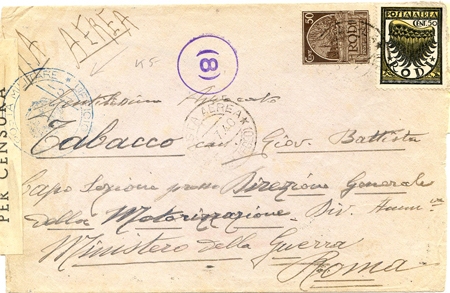 VIA AEREA
K5
(8)
50
RODI
POSTA AEREA
CENT. 50
RODI
PER CENSURA
POSTA AEREA
Gentilissimo Avvocato
Tabacco cav Giov. Battista
Capo Sezione presso Direzione Generale
della Motorizzazione Div.
Ministero della Guerra
Roma